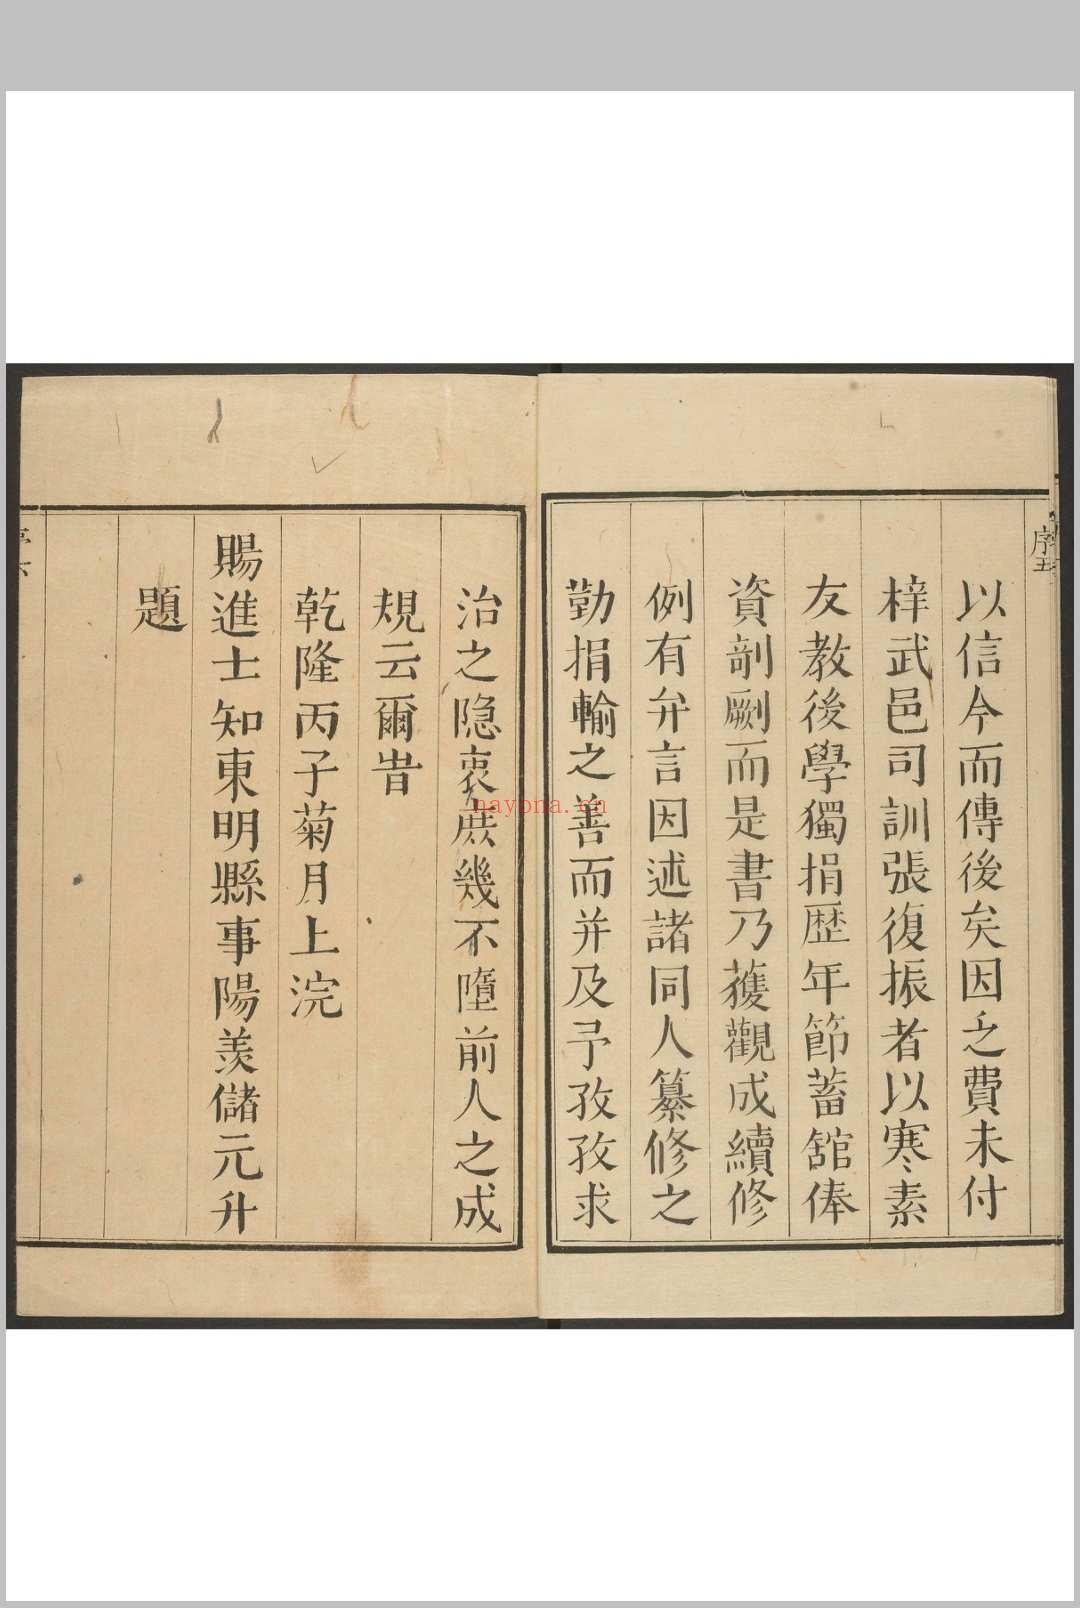 序
五
以信今而傳後矣因乏費未付
梓武邑司訓張復振者以寒素
友教後學獨捐歷年節蓄舘俸
資剞劂而是書乃獲觀成續修
例有弁言因述諸同人纂修之
勤捐輸之善而并及予孜孜求
治之隐衷庶幾不墮前人之成
規云爾旹
乾隆丙子菊月上浣
賜進士知東明縣事陽羨儲元升
題
nayona.cn